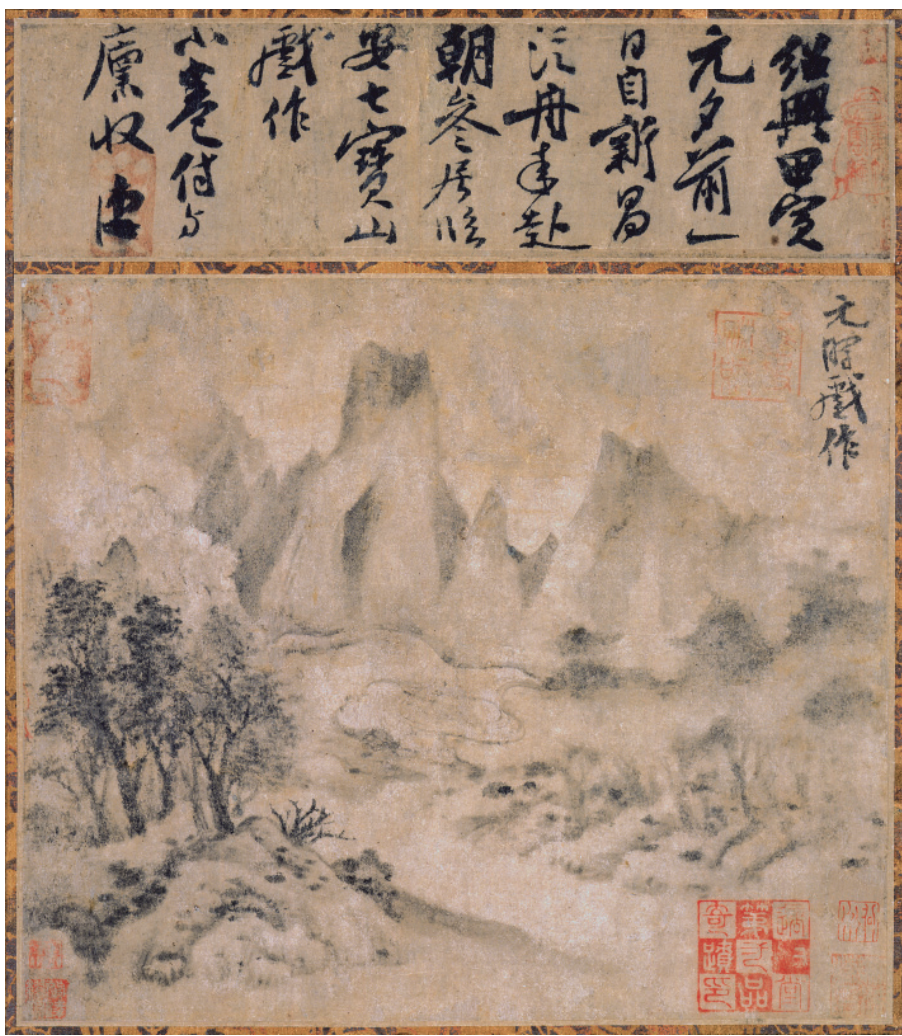 紹興甲寅
元夕前一
日自新昌
泛舟來赴
朝參居臨
安七寶山
戲作
小卷付与
廩收
元暉戲作
奇蹟印